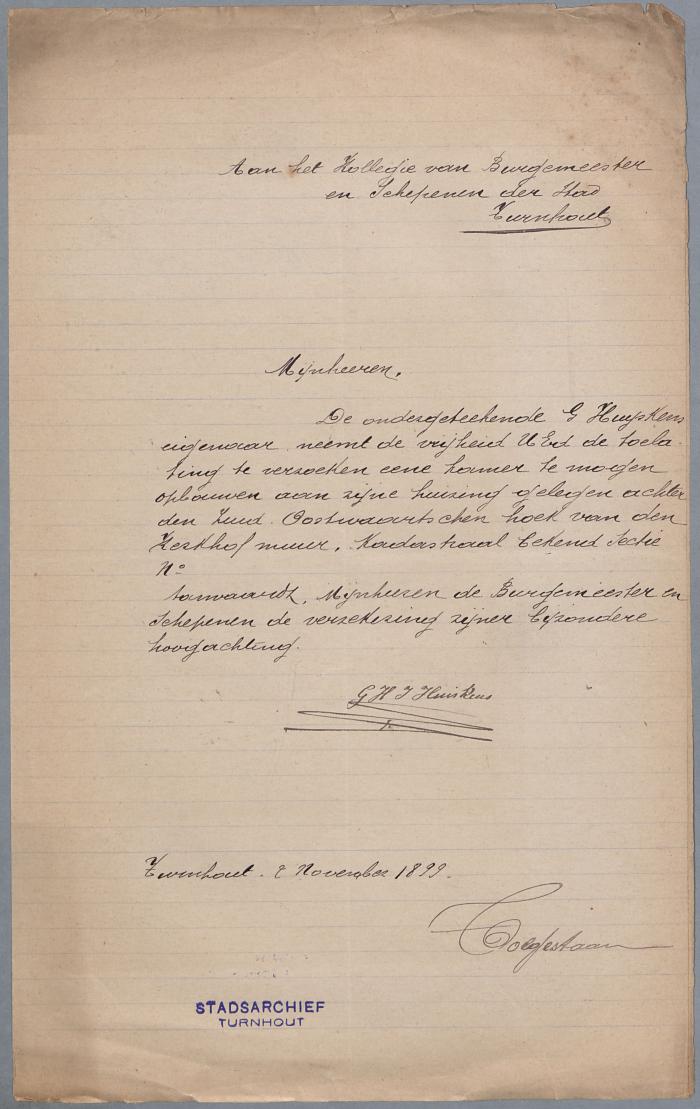 Aan het Kollegie van Burgemeester
en Schepenen der Stad
Turnhout
Mijnheeren,
De ondergeteekende G Huyskens
eigenaar neemt de vrijheid UEd de toela-
ting te verzoeken eene kamer te mogen
opbouwen aan zijne huizing gelegen achter
den Zuid Oostwaartschen hoek van den
Kerkhof muur, Kadastraal bekend Sectie
No
Aanvaardt, Mijnheeren de Burgemeester en
Schepenen de verzekering zijner bijzondere
hoogachting.
G H J Huiskens
Turnhout November 1899.
Toegestaan
STADSARCHIEF
TURNHOUT